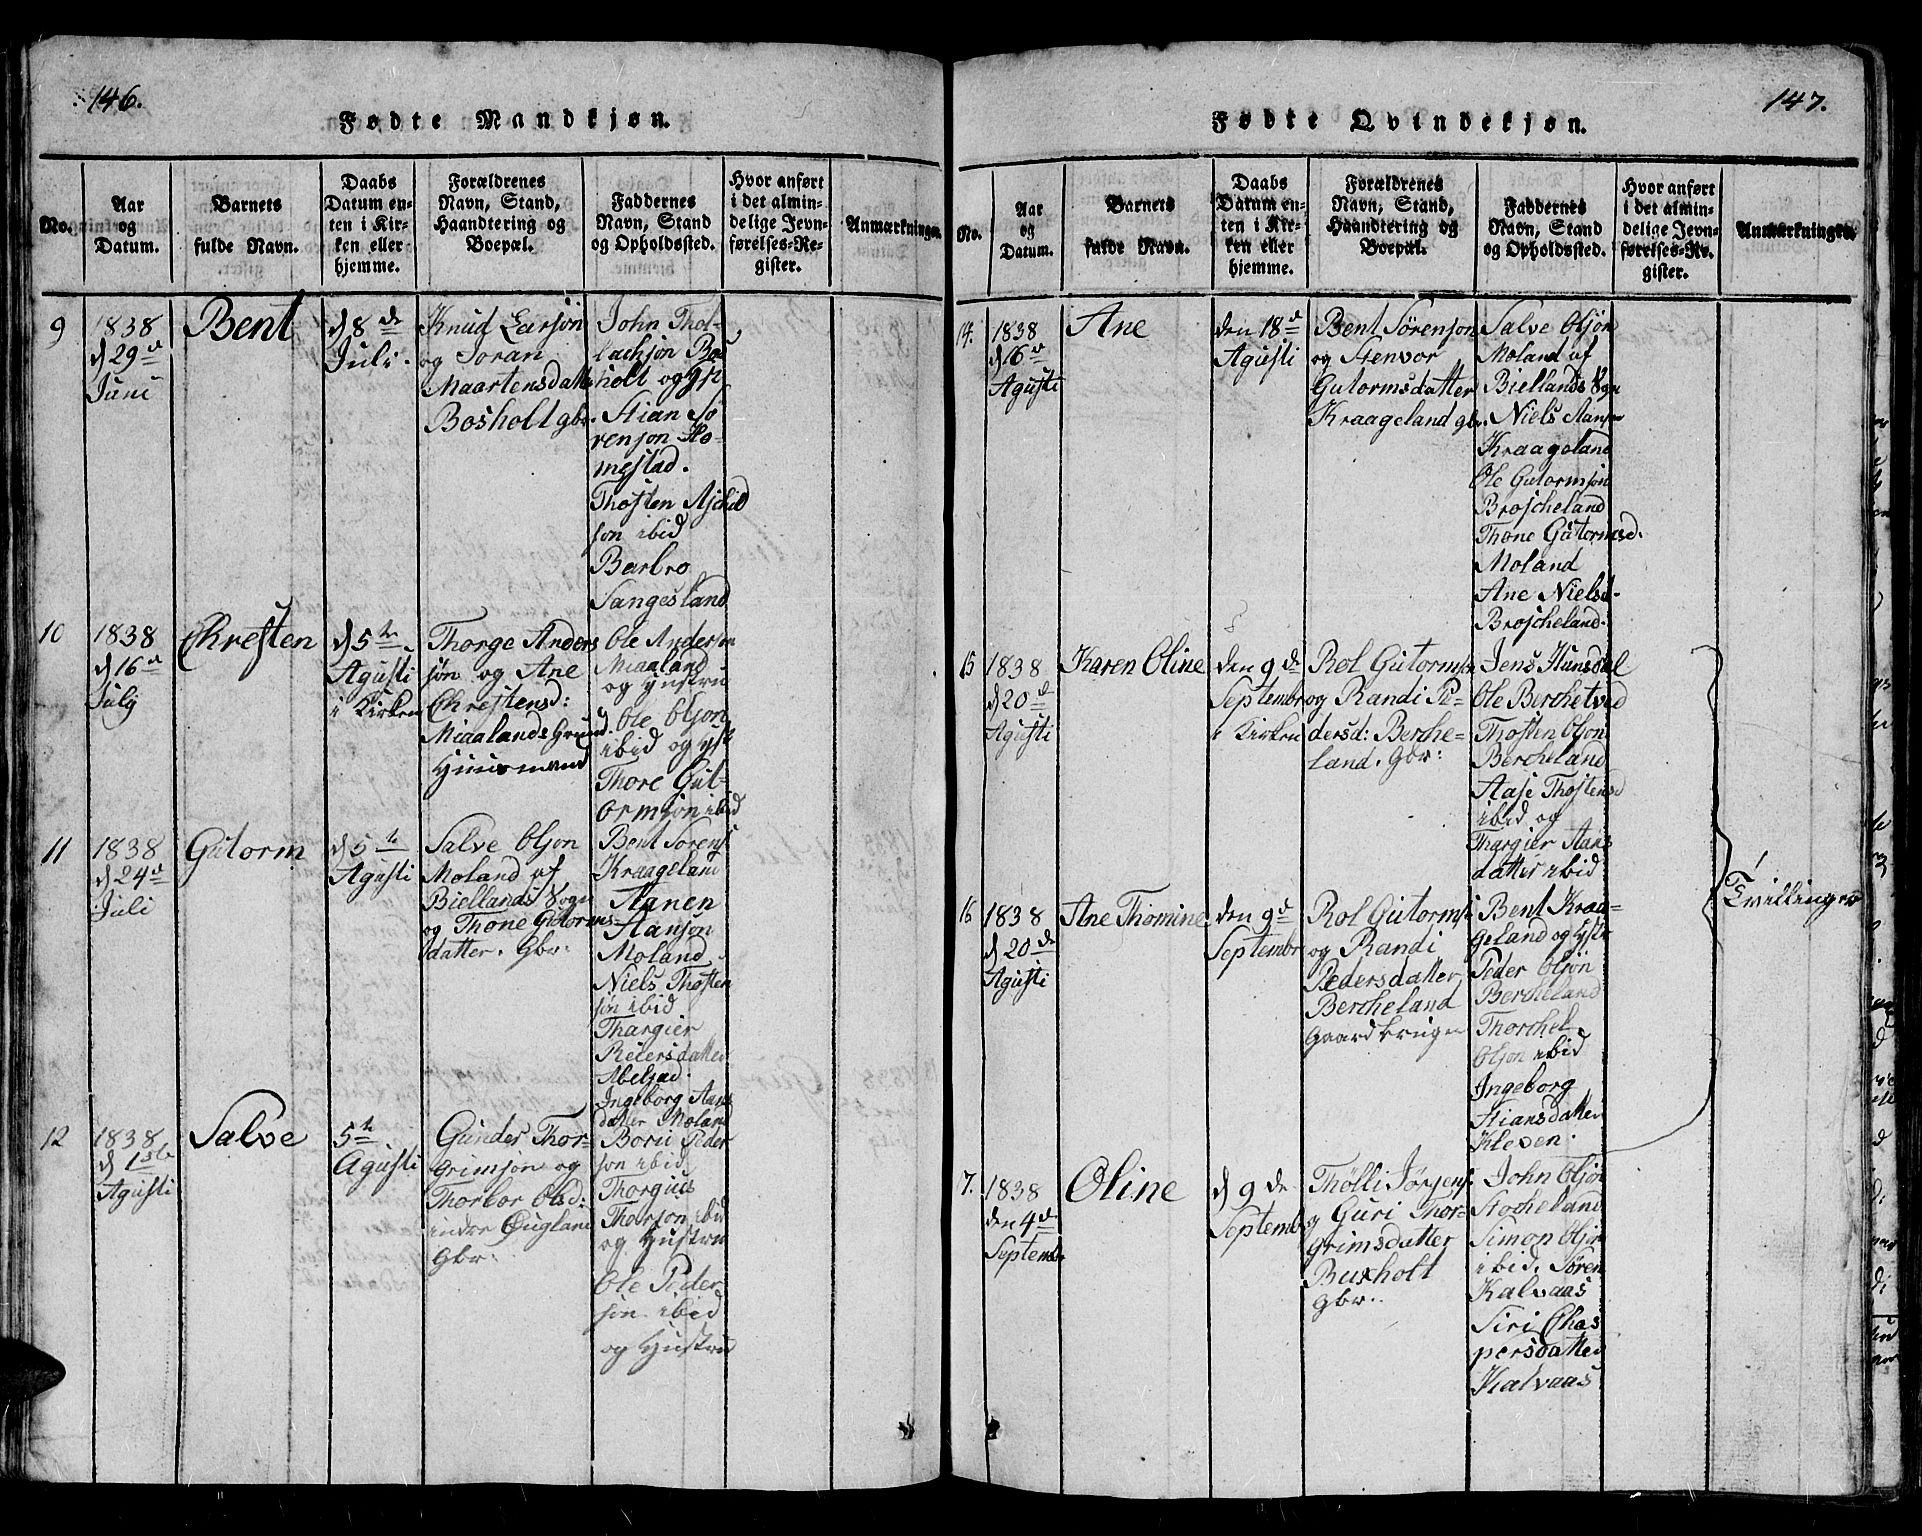 146.
Fødte Mandkjøn.
No.
Aar
og
Datum.
Barnets
fulde Navn.
Daabs
Datum en-
ten i Kir-
ken eller
hjemme.
Forældrenes
Navn, Stand,
Haandtering og
Boepæl.
Faddernes
Navn, Stand
og Opholdssted.
Hvor anført
i det almin-
delige Jevn-
førelses-Re-
gister.
Anmærkninger.
9
1838
d 29de
Juni
Bent
d 8de
Juli.
Knud Larsøn
og Joran
Maartensdatter
Bosholt gbr.
John Thol-
lachsøn Bos
holt og
Stian Sø
rensøn Ho-
mestad.
Thosten Aschild
søn ibid
Barbro
Sangesland
10
1838
d 16de
July
Chresten
d 5te
Agusti
i Kirken
Thorge Anders
søn og Ane
Chrestensd:
Miaalands Grund.
Huusmand
Ole Andersøn
Miaaland
og Hustru
Ole Olsøn
ibid og Hst
Thore Gut-
ormsøn ibid
11
1838
d 24de
Juli
Gutorm
d 5te
Agusti
Salve Olsøn
Moland af
Biellands Sogn
og Thone Gutorms-
datter. Gbr:
Bent Sørens
Kraageland
Aanen
Hansøn
Moland
Niels Thosten
søn ibid
Thargier
Reiersdatter
Abelsad.
Ingeborg Aans
datter Moland
12
1838
d 1ste
Agusti
Salve
5te
Agusti
Gunder Thor-
grimsøn og
Thorbor Olsd:
indre Øugland
Gbr:
Boru Peder
søn ibid
Thorgius
Thorsøn ibid
og Hustru
Ole Peder
søn ibid
og Hustru
147.
Fødte Qvindekjøn.
No.
Aar
og
Datum.
Barnets
fulde Navn.
Daabs
Datum en-
ten i Kir-
ken eller
hjemme.
Forældrenes
Navn, Stand,
Haandtering og
Boepæl.
Faddernes
Navn, Stand
og Opholdssted.
Hvor anført
i det almin-
delige Jevn-
førelses-Re-
gister.
Anmærkninger.
14.
1838
d 16de
Agusti
Ane
den 18de
Agusti
Bent Sørensøn
og Stenvor
Gutormsdatter
Kraageland gbr.
Salve Olsøn
Moland af
Biellands Sogn
Niels Hansøn
Kraageland
Ole Gutormsøn
Broscheland
Thone Gutormsd.
Moland
Ane Nielsd.
Broscheland.
15
1838
d 20de
Agusti
Karen Oline
den 9de
Septembr
i Kirken
Rol Gutormsøn
og Randi Pe-
dersd: Berche-
land. Gbr:
Jens Hunsdal
Ole Berchetved
Thosten Olsøn
Bercheland
Aase Thostensd
ibid og
Thargier Aans
datter ibid
16
1838
d 20de
Agusti
Ane Thomine
den 9de
Septembr
Rol Gutorms
og Randi
Pedersdatter
Bercheland
Gaardbruger
Bent Kraa-
geland og Hst
Peder Olsøn
Bercheland
Thorchel
Olsøn ibid
Ingeborg
Stiansdatter
Kleven.
Tvillinger
7.
1838
den 4de
Septembr
Oline
d 9de
Septembr
Thølli Jørgens
og Guri Thor-
grimsdatter
Buxholt
gbr.
John Olsøn
Stocheland
Simon Olsøn
ibid. Søren
Kalvaas
Siri Chas
persdatter
Kalvaas